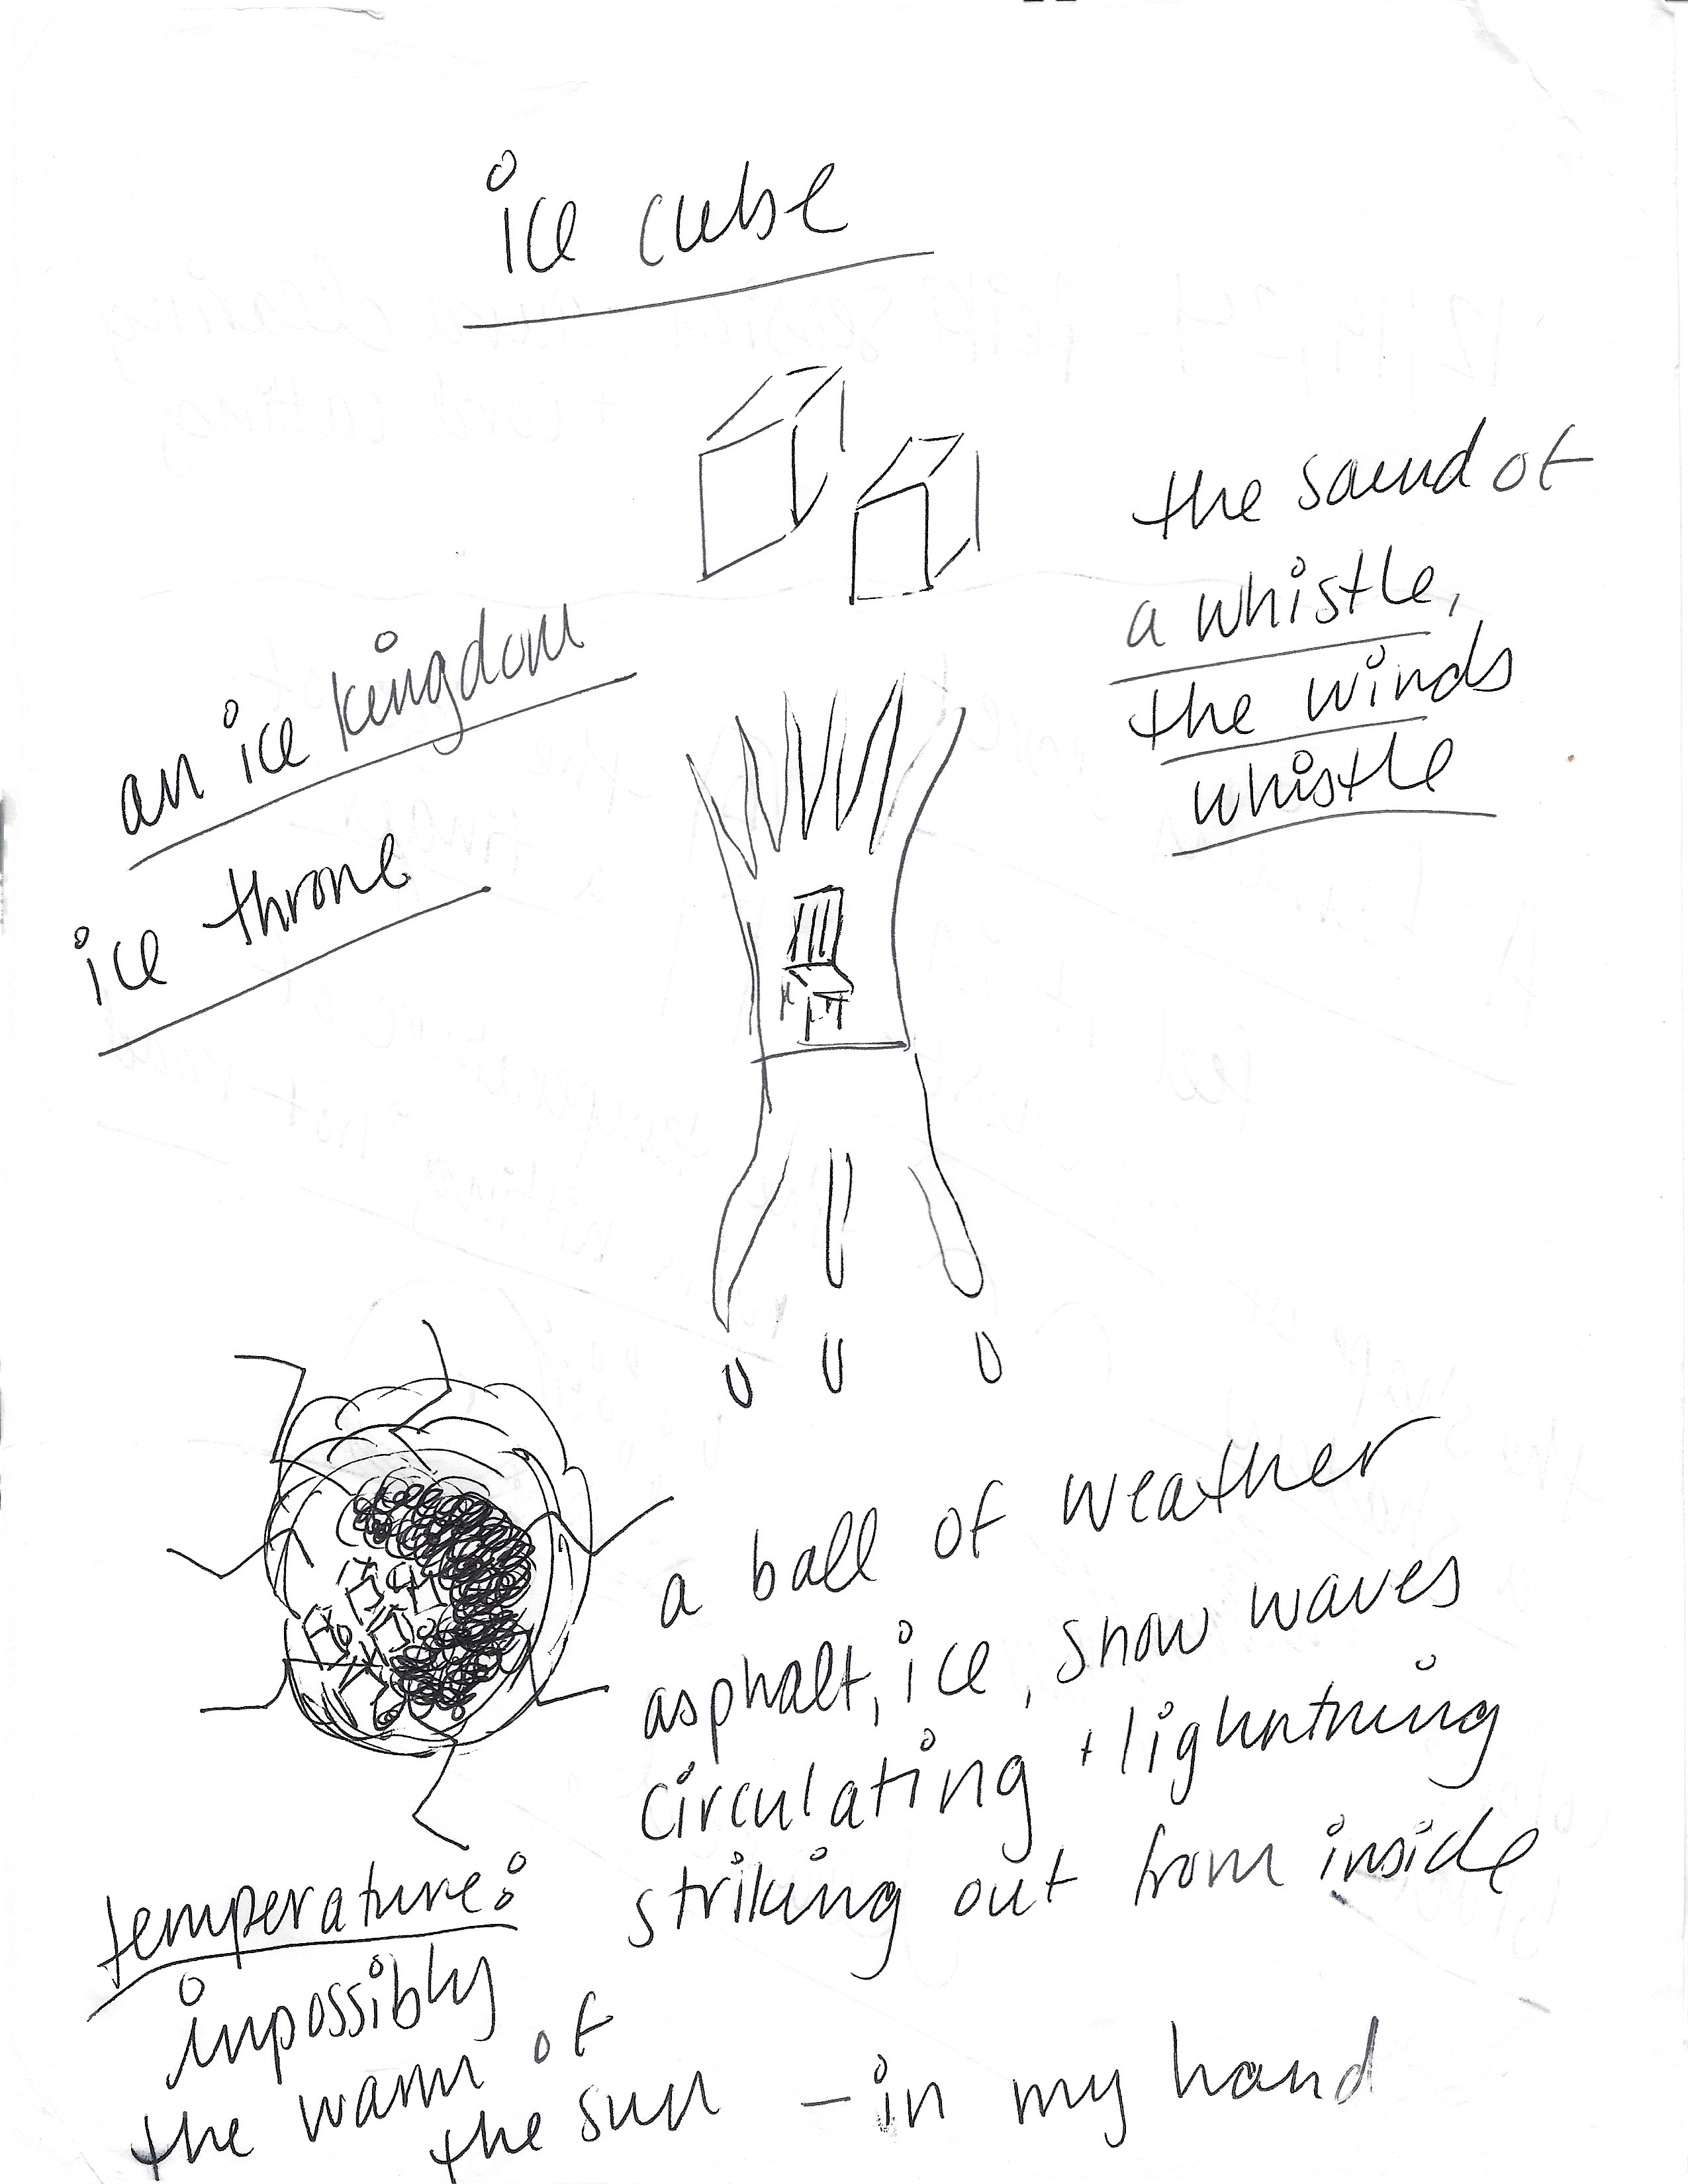 ice cube
the sound of
a whistle,
the winds
whistle
an ice kingdom
ice throne
a ball of weather
asphalt, ice, snow waves
circulating + lightning
striking out from inside
temperature:
impossibly
the warm of
the sun - in my hand